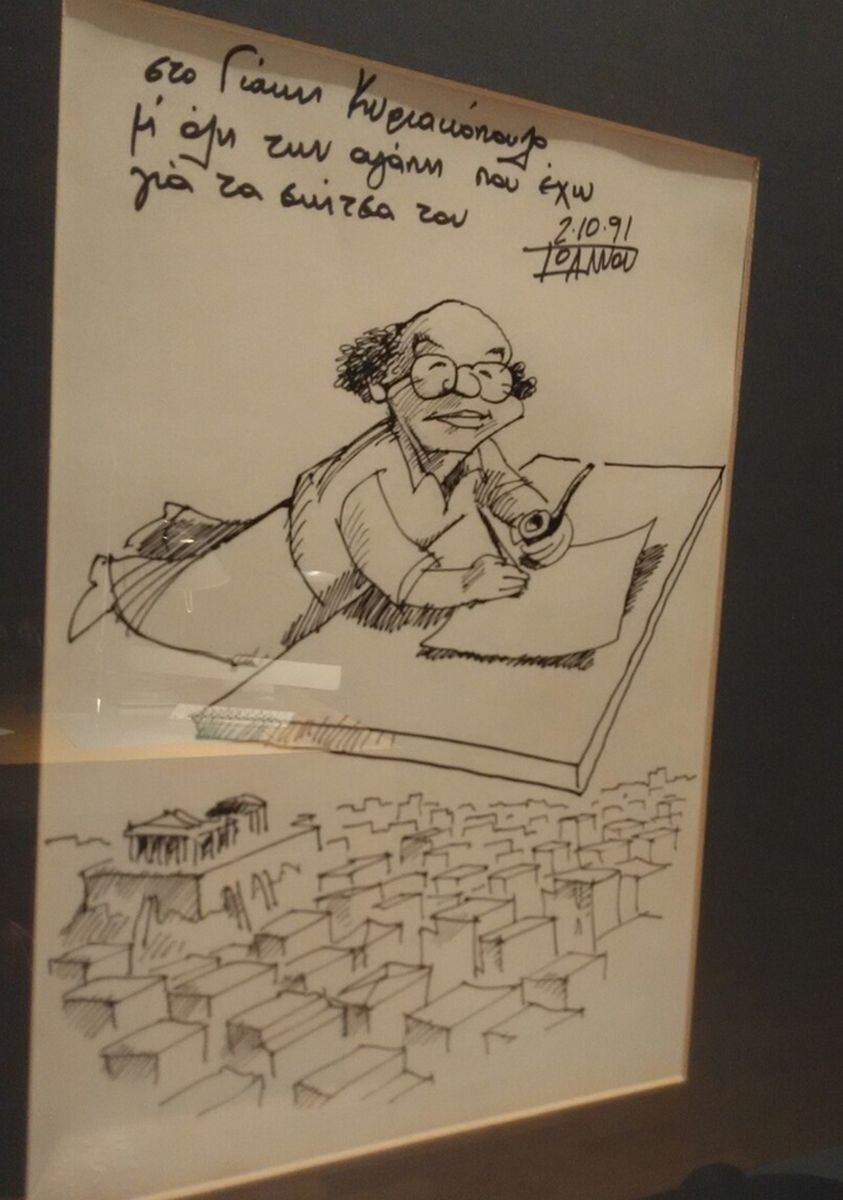 στο Γιάννη Κυριακόπουλο
μ' όλη την αγάπη που έχω
γιά τα σκίτσα του
2·10·91
ΙΩΑΝΝΟΥ